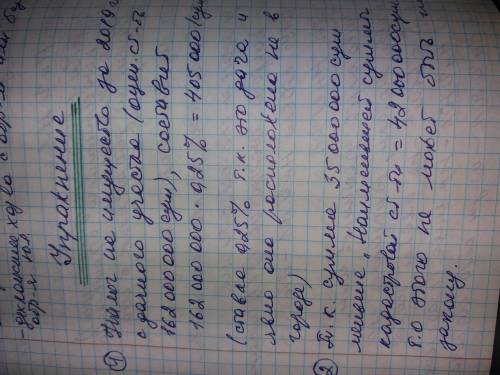 Упражнение
① Налог на имущество за 2019 г
с дачного участка (оцен. ст-ть
162 000 000 сум), составит
162 000 000 · 0,25% = 405 000 (сум)
(ставка 0,25% т.к. это дача и
явно она расположена не в
городе)
② Т.к. сумма 35 000 000 сум
меньше, наименьшей суммы
кадастровой ст-ти = 42 000 000 сум,
т.о этого не может быть по
закону.